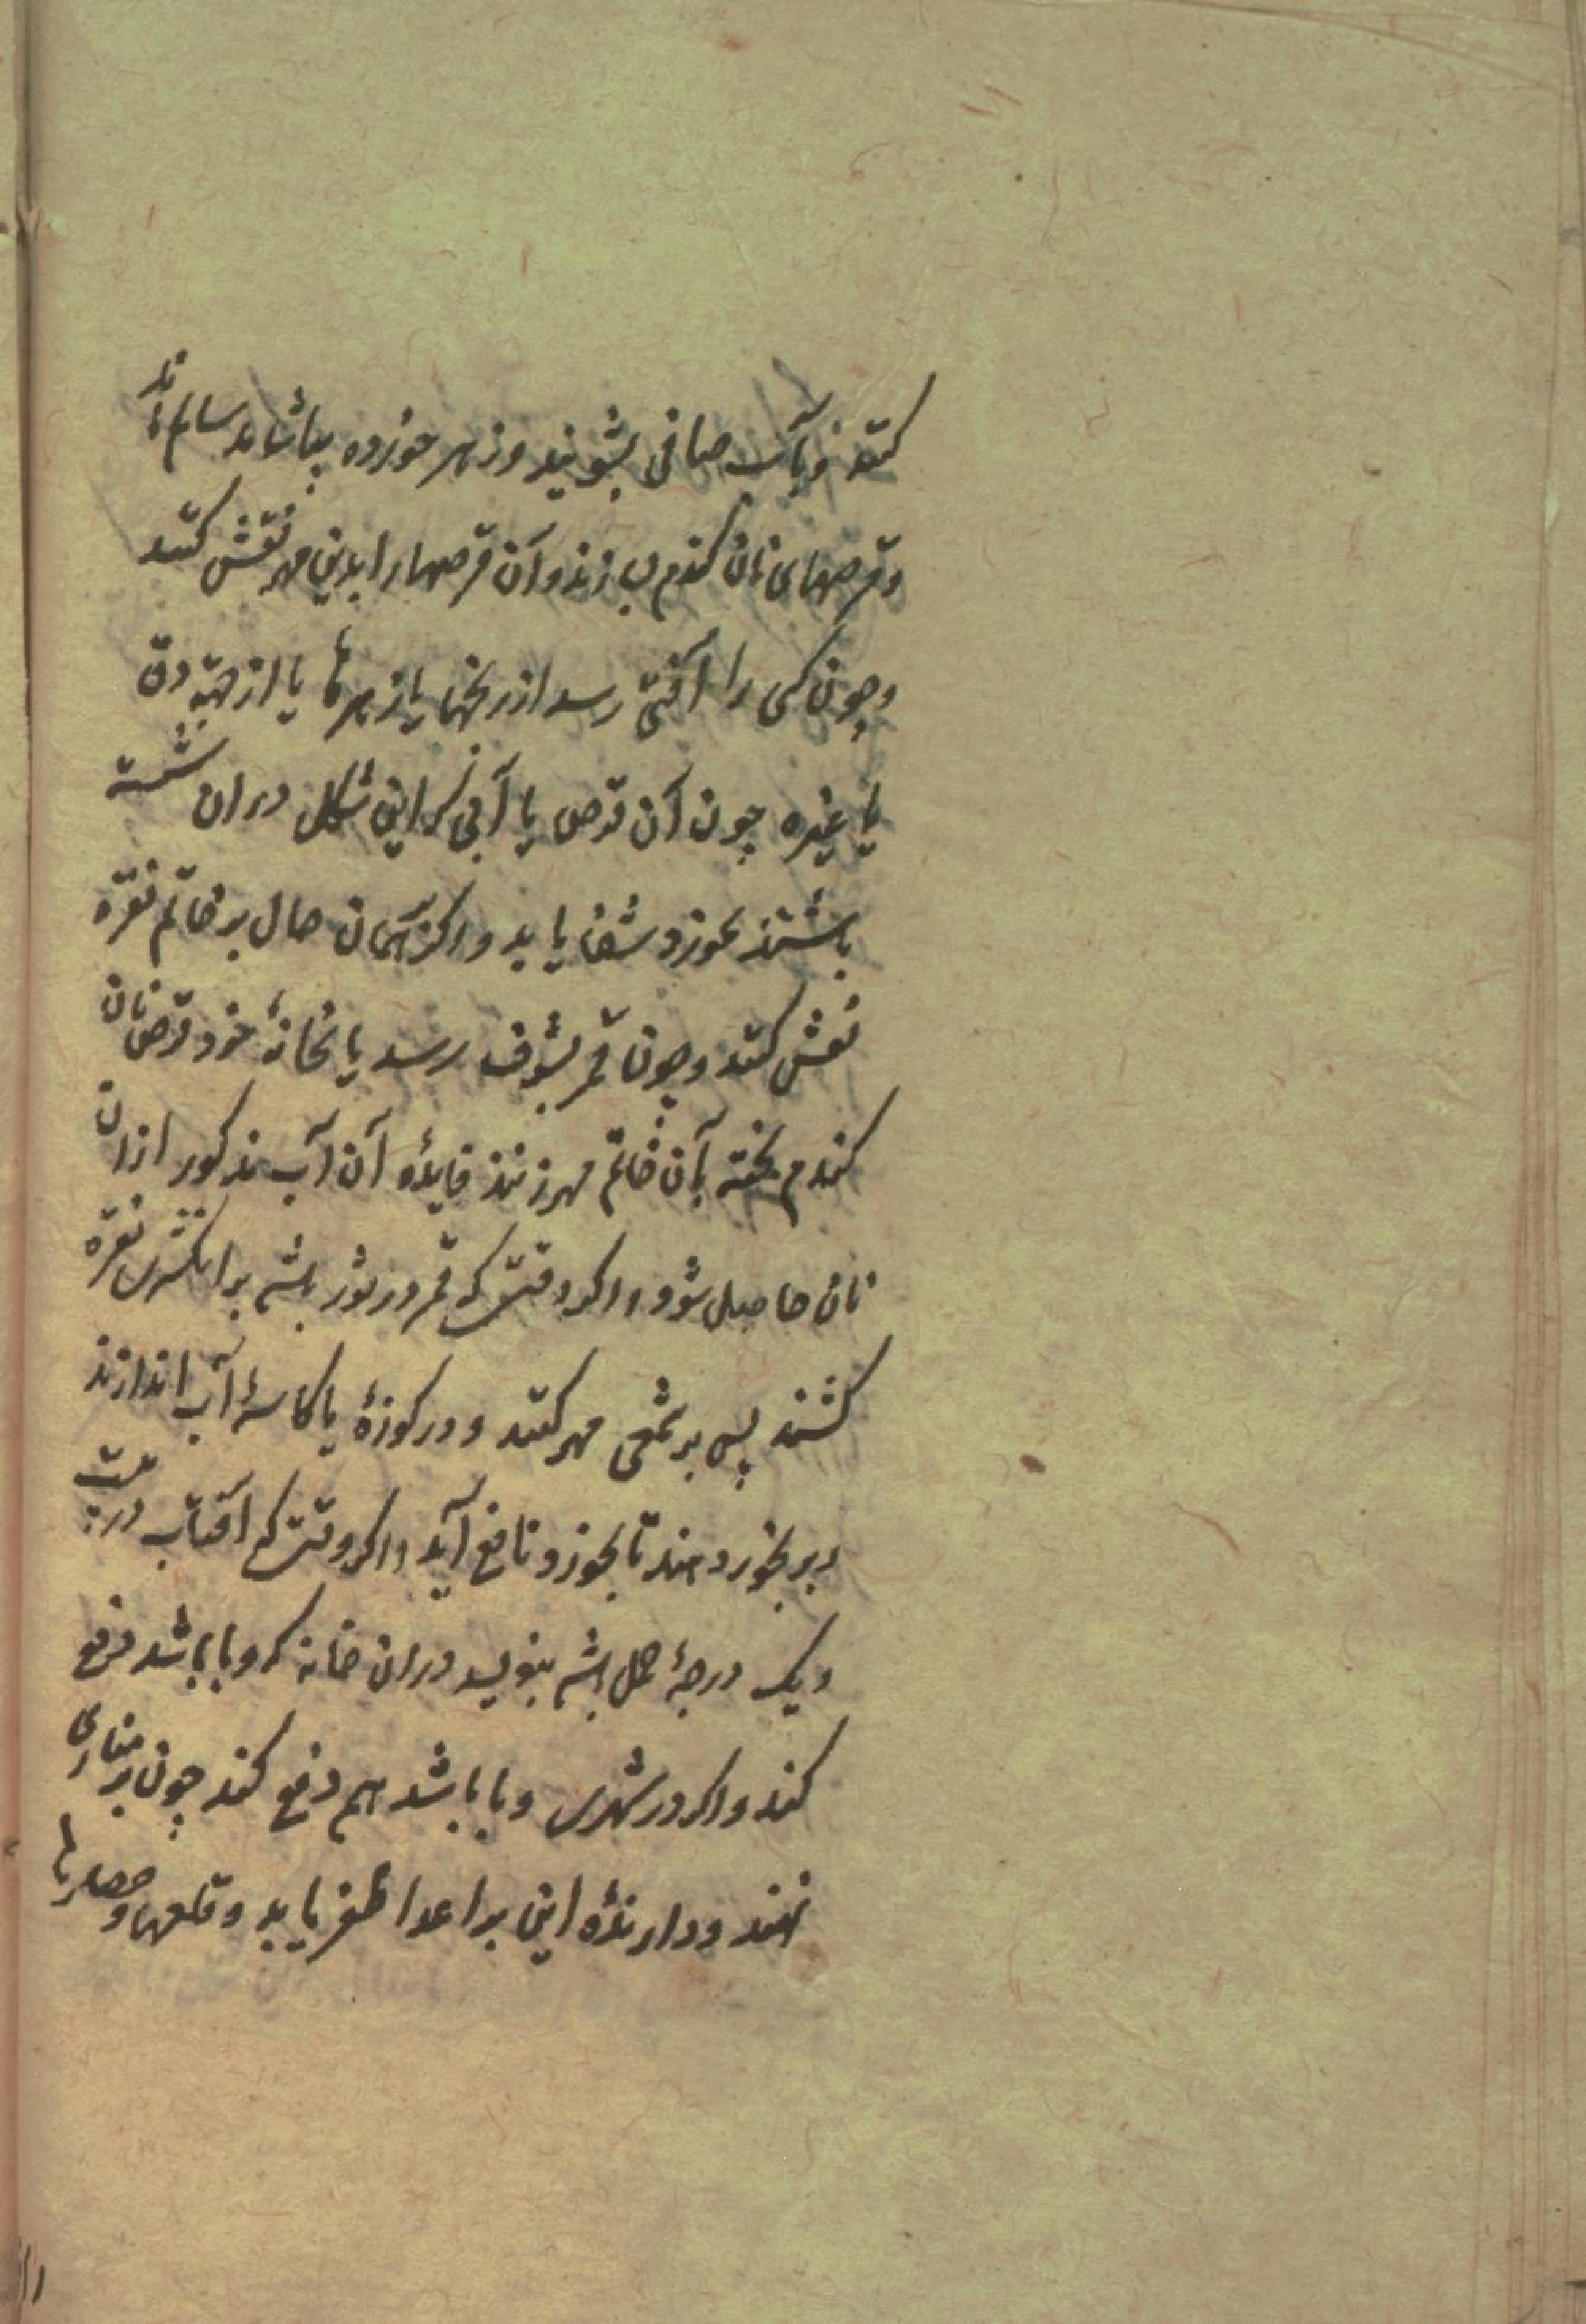 کنند و بآب صافی بشویند و زهر خورده بیاشامد سالم ماند
و قرصهای نان کندم بسازند و آن قرصها را بدین مهر نقش کنند
و چون کسی را آفتی رسد از رنجها یا زهرها یا از جهة دق
یا غیره چون آن قرص یا آبی که این شکل در ان شسته
باشند بخورد شفا یابد و اکر همان حال بر خاتم نقره
نقش کنند و چون قمر بشرف رسد یا بخانهٔ خود قرص نان
کندم پخته بآن خاتم مهر زنند فایدهٔ آن آب مذکور از ان
نان حاصل شود و اکر وقتی که قمر در ثور باشد بر انکشتری نقره
کشند پس بر شمعی مهر کنند و در کوزهٔ یا کاسهٔ آب اندازند
و بر بخورد دهند تا بخورد نافع آید و اکر وقتی که آفتاب در بیست
و یک درجهٔ حمل باشد بنویسد در ان خانه که وبا باشد دفع
کند و اکر در شهری وبا باشد هم دفع کند چون بر مناری
نهند و دارندهٔ این بر اعدا ظفر یابد و قلعها و حصارها